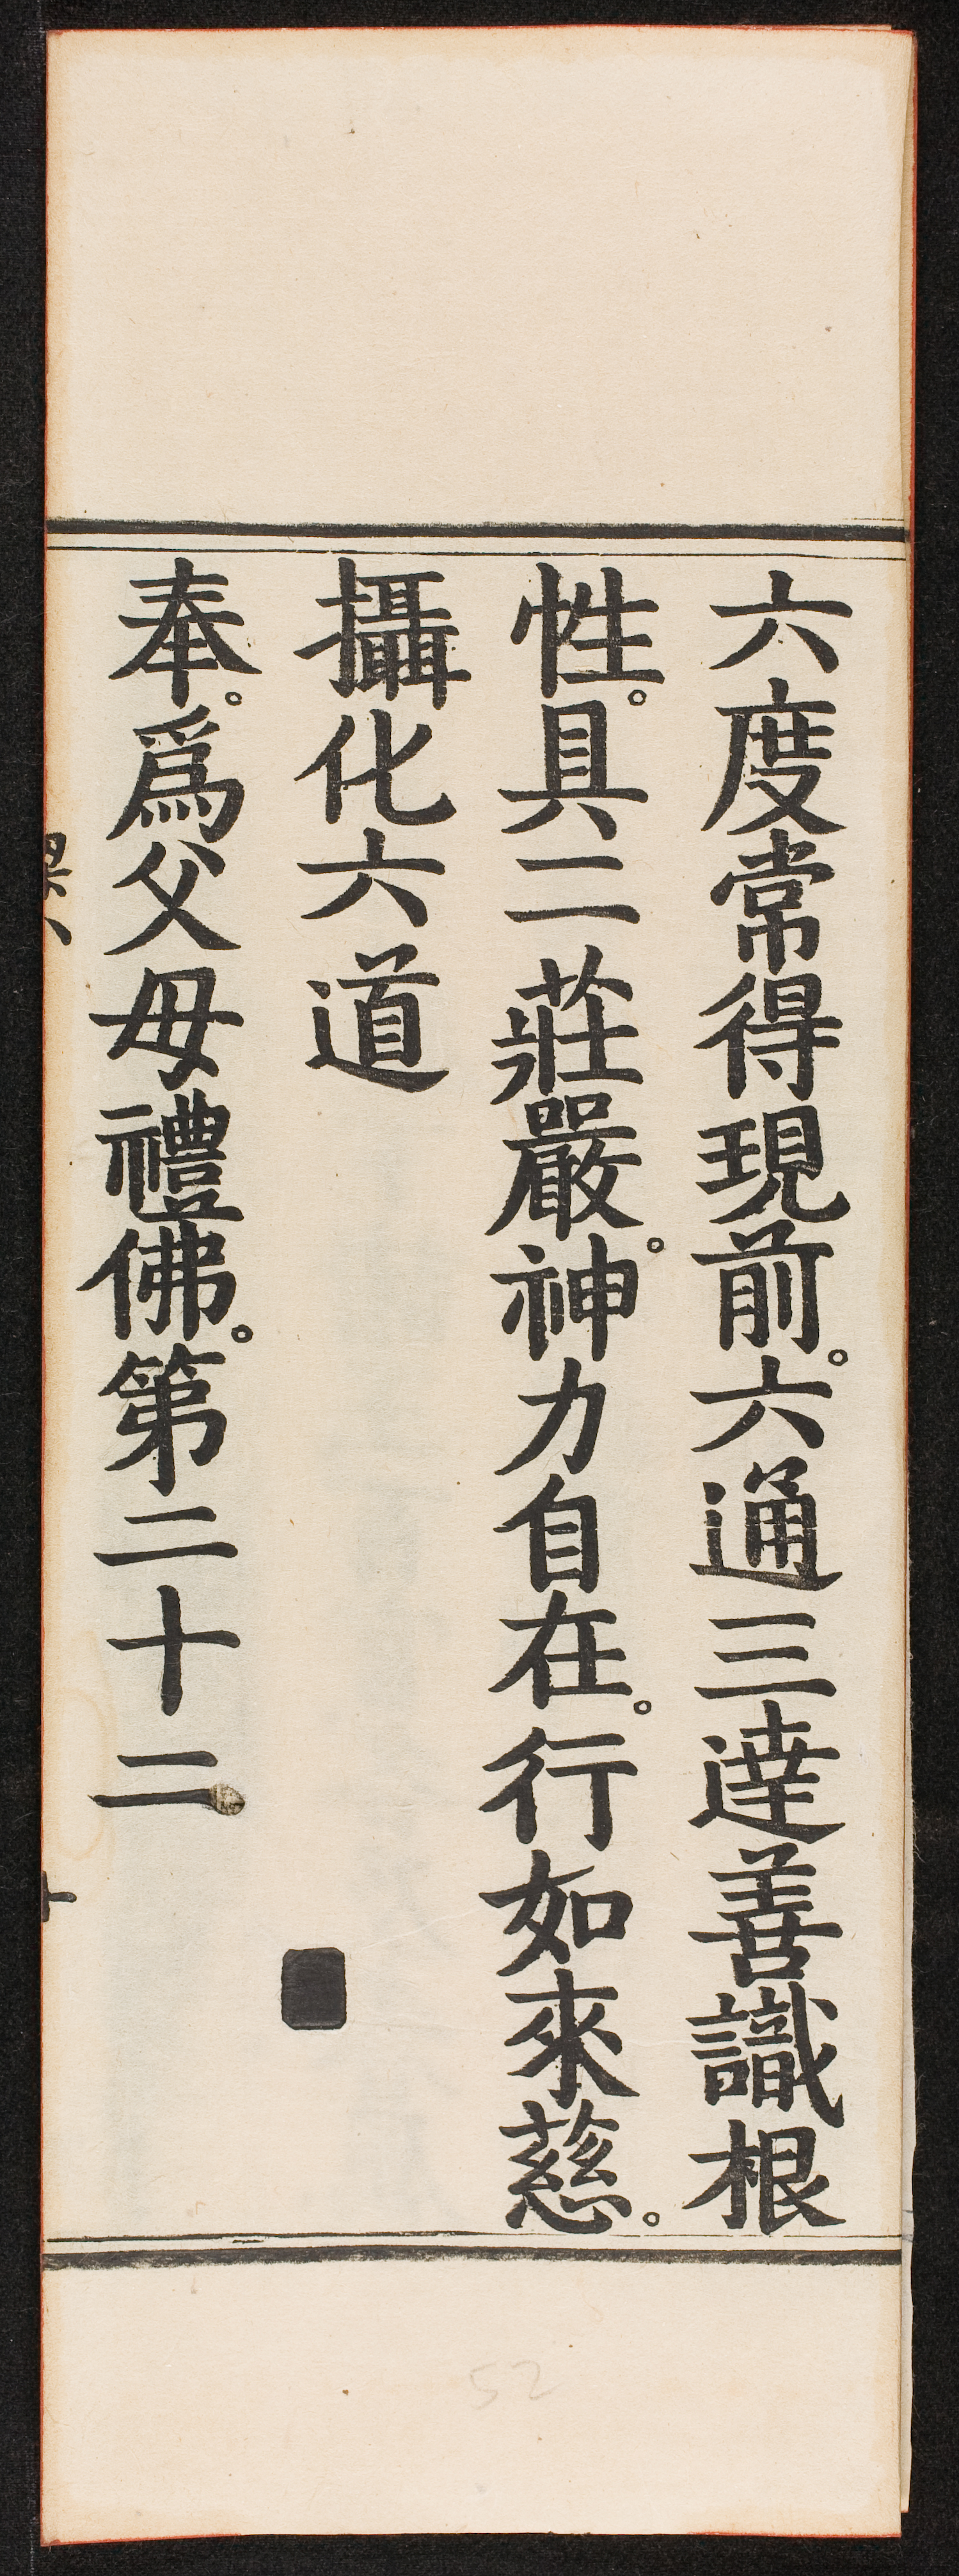 六度常得現前。六通三達善識根
性。具二莊嚴。神力自在。行如來慈。
攝化六道
奉。爲父母禮佛。第二十二
52